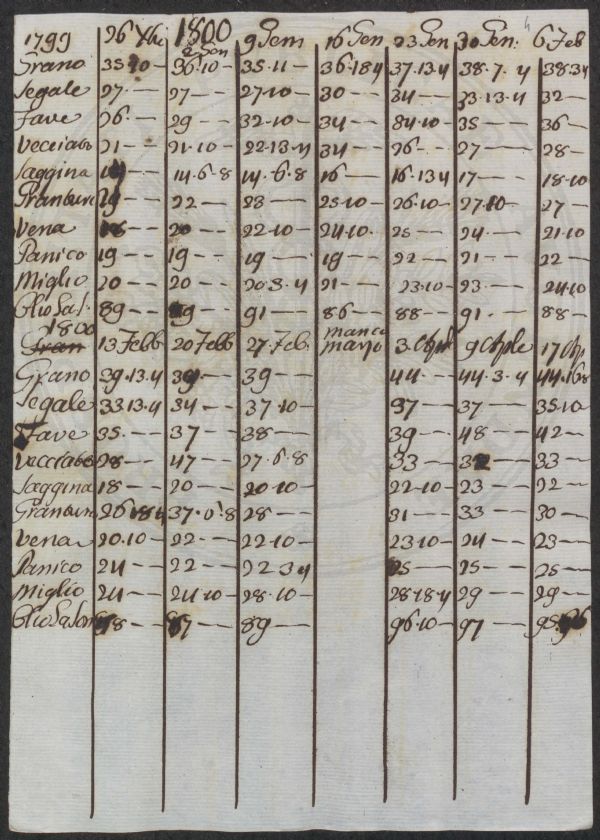 1799 26 Xbr 1800 2 Gen 9 Genn 16 Gen 23 Gen 30 Gen: 6 Feb 4
Grano 35 10 - 36-10 - 35-11 - 36-18 4 37-13-4 38-7-4 38-3 4
Segale 27 - - 27 - - 27-10 - 30 - - 34 - - 33-13-4 32 -
Fave 26 - - 29 - - 32-10 - 34 - - 34-10 - 35 - - 36 -
Vecciato 21 - - 21-10 - 22-13-4 34 - - 26 - - 27 - - 28 -
Saggina - - 14-6-8 14-6-8 16 - - 16-13 4 17 - - 18-10
Granturco 19 - - 22 - - 23 - - 25-10 - 26-10 - 27-10 - 27 -
Vena 18 - - 20 - - 22-10 - 24-10 - 25 - - 24 - - 21-10
Panico 19 - - 19 - - 19 - - 19 - - 22 - - 21 - - 22 -
Miglio 20 - - 20 - - 20-3-4 21 - - 23-10 - 23 - - 24-10
Olio Sal. 89 - - 89 - - 91 - - 86 - - 88 - - 91 - - 88 -
1800 Gran 13 Febb 20 Febb 27 Feb. manca marzo 3 Aple 9 Aple 17 Ap
Grano 39-13-4 39 - - 39 - - 44 - - 44-3-4 44-16 8
Segale 33 13-4 34 - - 37-10 - 37 - - 37 - - 35-10
Fave 35 - - 37 - - 38 - - 39 - - 48 - - 42 -
Vecciato 28 - - 47 - - 27-6-8 33 - - 32 - - 33 -
Saggina 18 - - 20 - - 20-10 - 22-10 - 23 - - 22 -
Granturco 26 18 4 37-6-8 28 - - 31 - - 33 - - 30 -
Vena 20-10 - 22 - - 22-10 - 23-10 - 24 - - 23 -
Panico 24 - - 22 - - 22-3 4 25 - - 25 - - 25 -
Miglio 24 - - 24-10 - 28-10 - 28-18-4 29 - - 29 -
Olio Salm 88 - - 87 - - 89 - - 96-10 - 97 - - 95-